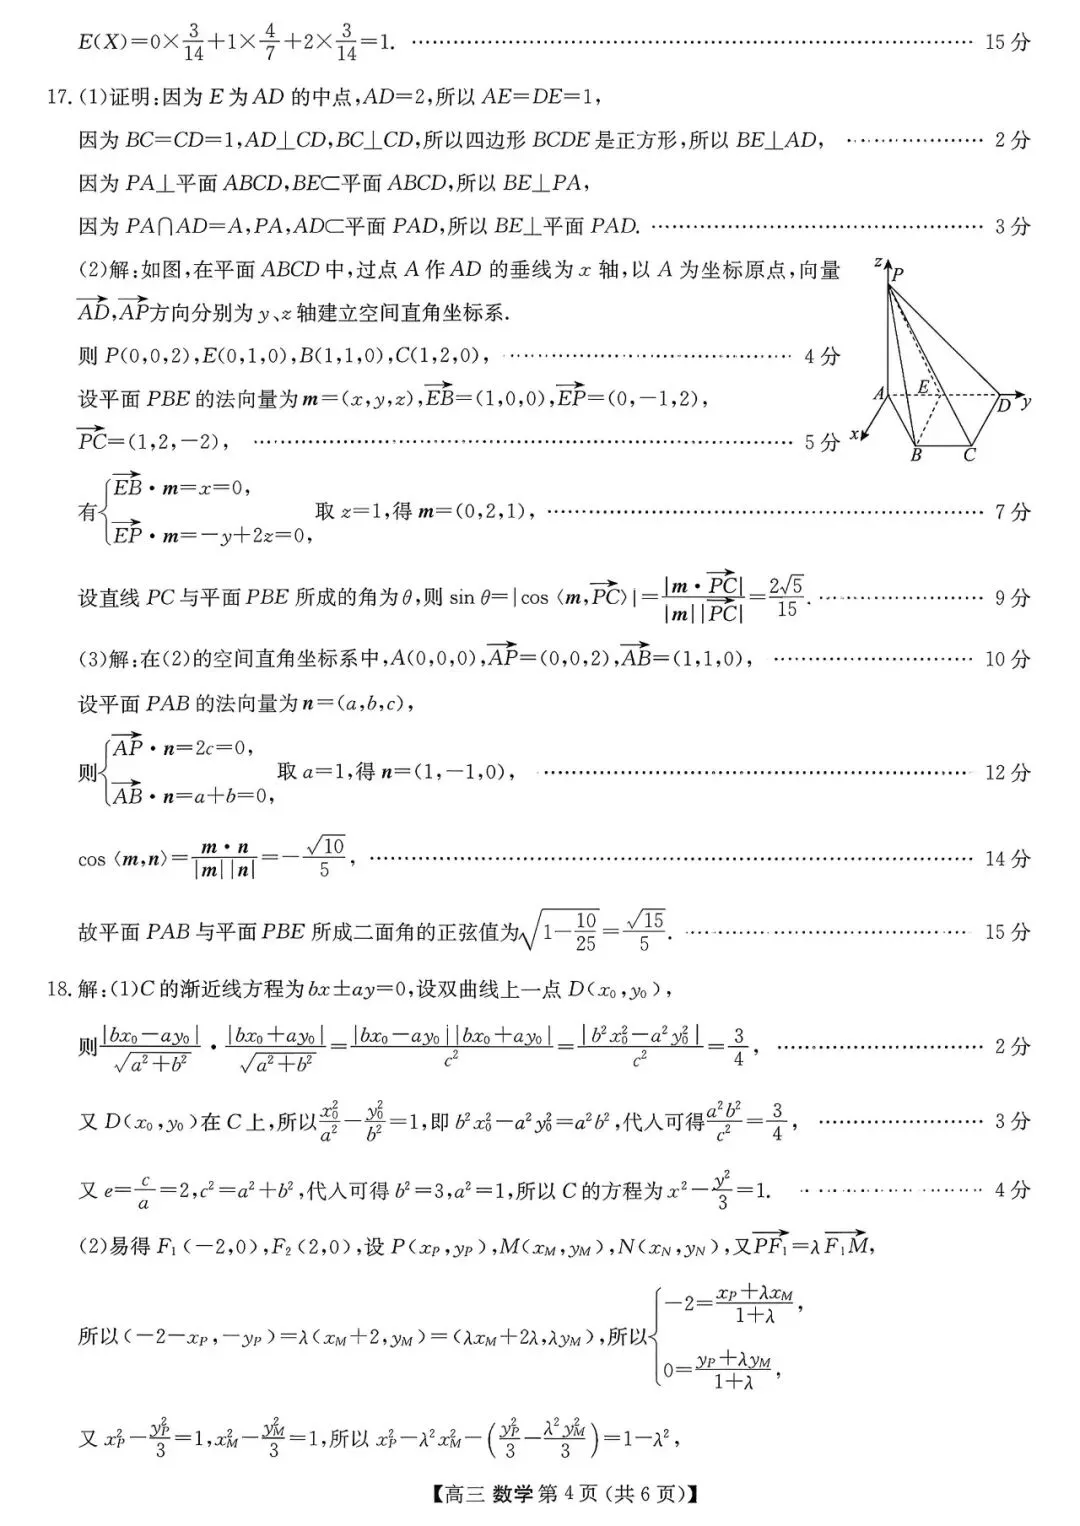 E(X)=0×3/14+1×4/7+2×3/14=1. …… 15分
17. (1)证明:因为E为AD的中点,AD=2,所以AE=DE=1,
因为BC=CD=1,AD⊥CD,BC⊥CD,所以四边形BCDE是正方形,所以BE⊥AD, …… 2分
因为PA⊥平面ABCD,BE⊂平面ABCD,所以BE⊥PA,
因为PA∩AD=A,PA,AD⊂平面PAD,所以BE⊥平面PAD. …… 3分
(2)解:如图,在平面ABCD中,过点A作AD的垂线为x轴,以A为坐标原点,向量
→AD,→AP方向分别为y、z轴建立空间直角坐标系.
则P(0,0,2),E(0,1,0),B(1,1,0),C(1,2,0), …… 4分
设平面PBE的法向量为m=(x,y,z),→EB=(1,0,0),→EP=(0,-1,2),
→PC=(1,2,-2), …… 5分
z P A E D y x B C
有{→EB·m=x=0, →EP·m=-y+2z=0, 取z=1,得m=(0,2,1), …… 7分
设直线PC与平面PBE所成的角为θ,则sin θ=|cos〈m,→PC〉|=|m·→PC|/|m||→PC|=2√5/15. …… 9分
(3)解:在(2)的空间直角坐标系中,A(0,0,0),→AP=(0,0,2),→AB=(1,1,0), …… 10分
设平面PAB的法向量为n=(a,b,c),
则{→AP·n=2c=0, →AB·n=a+b=0, 取a=1,得n=(1,-1,0), …… 12分
cos〈m,n〉=m·n/|m||n|=-√10/5, …… 14分
故平面PAB与平面PBE所成二面角的正弦值为√(1-10/25)=√15/5. …… 15分
18. 解:(1)C的渐近线方程为bx±ay=0,设双曲线上一点D(x₀,y₀),
则|bx₀-ay₀|/√(a²+b²)·|bx₀+ay₀|/√(a²+b²)=|bx₀-ay₀||bx₀+ay₀|/c²=|b²x₀²-a²y₀²|/c²=3/4, …… 2分
又D(x₀,y₀)在C上,所以x₀²/a²-y₀²/b²=1,即b²x₀²-a²y₀²=a²b²,代入可得a²b²/c²=3/4, …… 3分
又e=c/a=2,c²=a²+b²,代入可得b²=3,a²=1,所以C的方程为x²-y²/3=1. …… 4分
(2)易得F₁(-2,0),F₂(2,0),设P(x_P,y_P),M(x_M,y_M),N(x_N,y_N),又→PF₁=λ→F₁M,
所以(-2-x_P,-y_P)=λ(x_M+2,y_M)=(λx_M+2λ,λy_M),所以{-2=(x_P+λx_M)/(1+λ), 0=(y_P+λy_M)/(1+λ),
又x_P²-y_P²/3=1,x_M²-y_M²/3=1,所以x_P²-λ²x_M²-(y_P²/3-λ²y_M²/3)=1-λ²,
【高三 数学 第4页(共6页)】